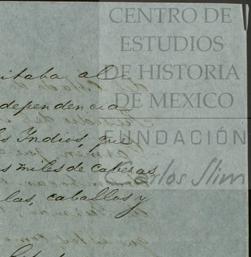 CENTRO DE
ESTUDIOS
DE HISTORIA
DE MEXICO
FUNDACIÓN
Carlos Slim
itaba al
dependencia
Indios, que
miles de cabezas
las, caballos y